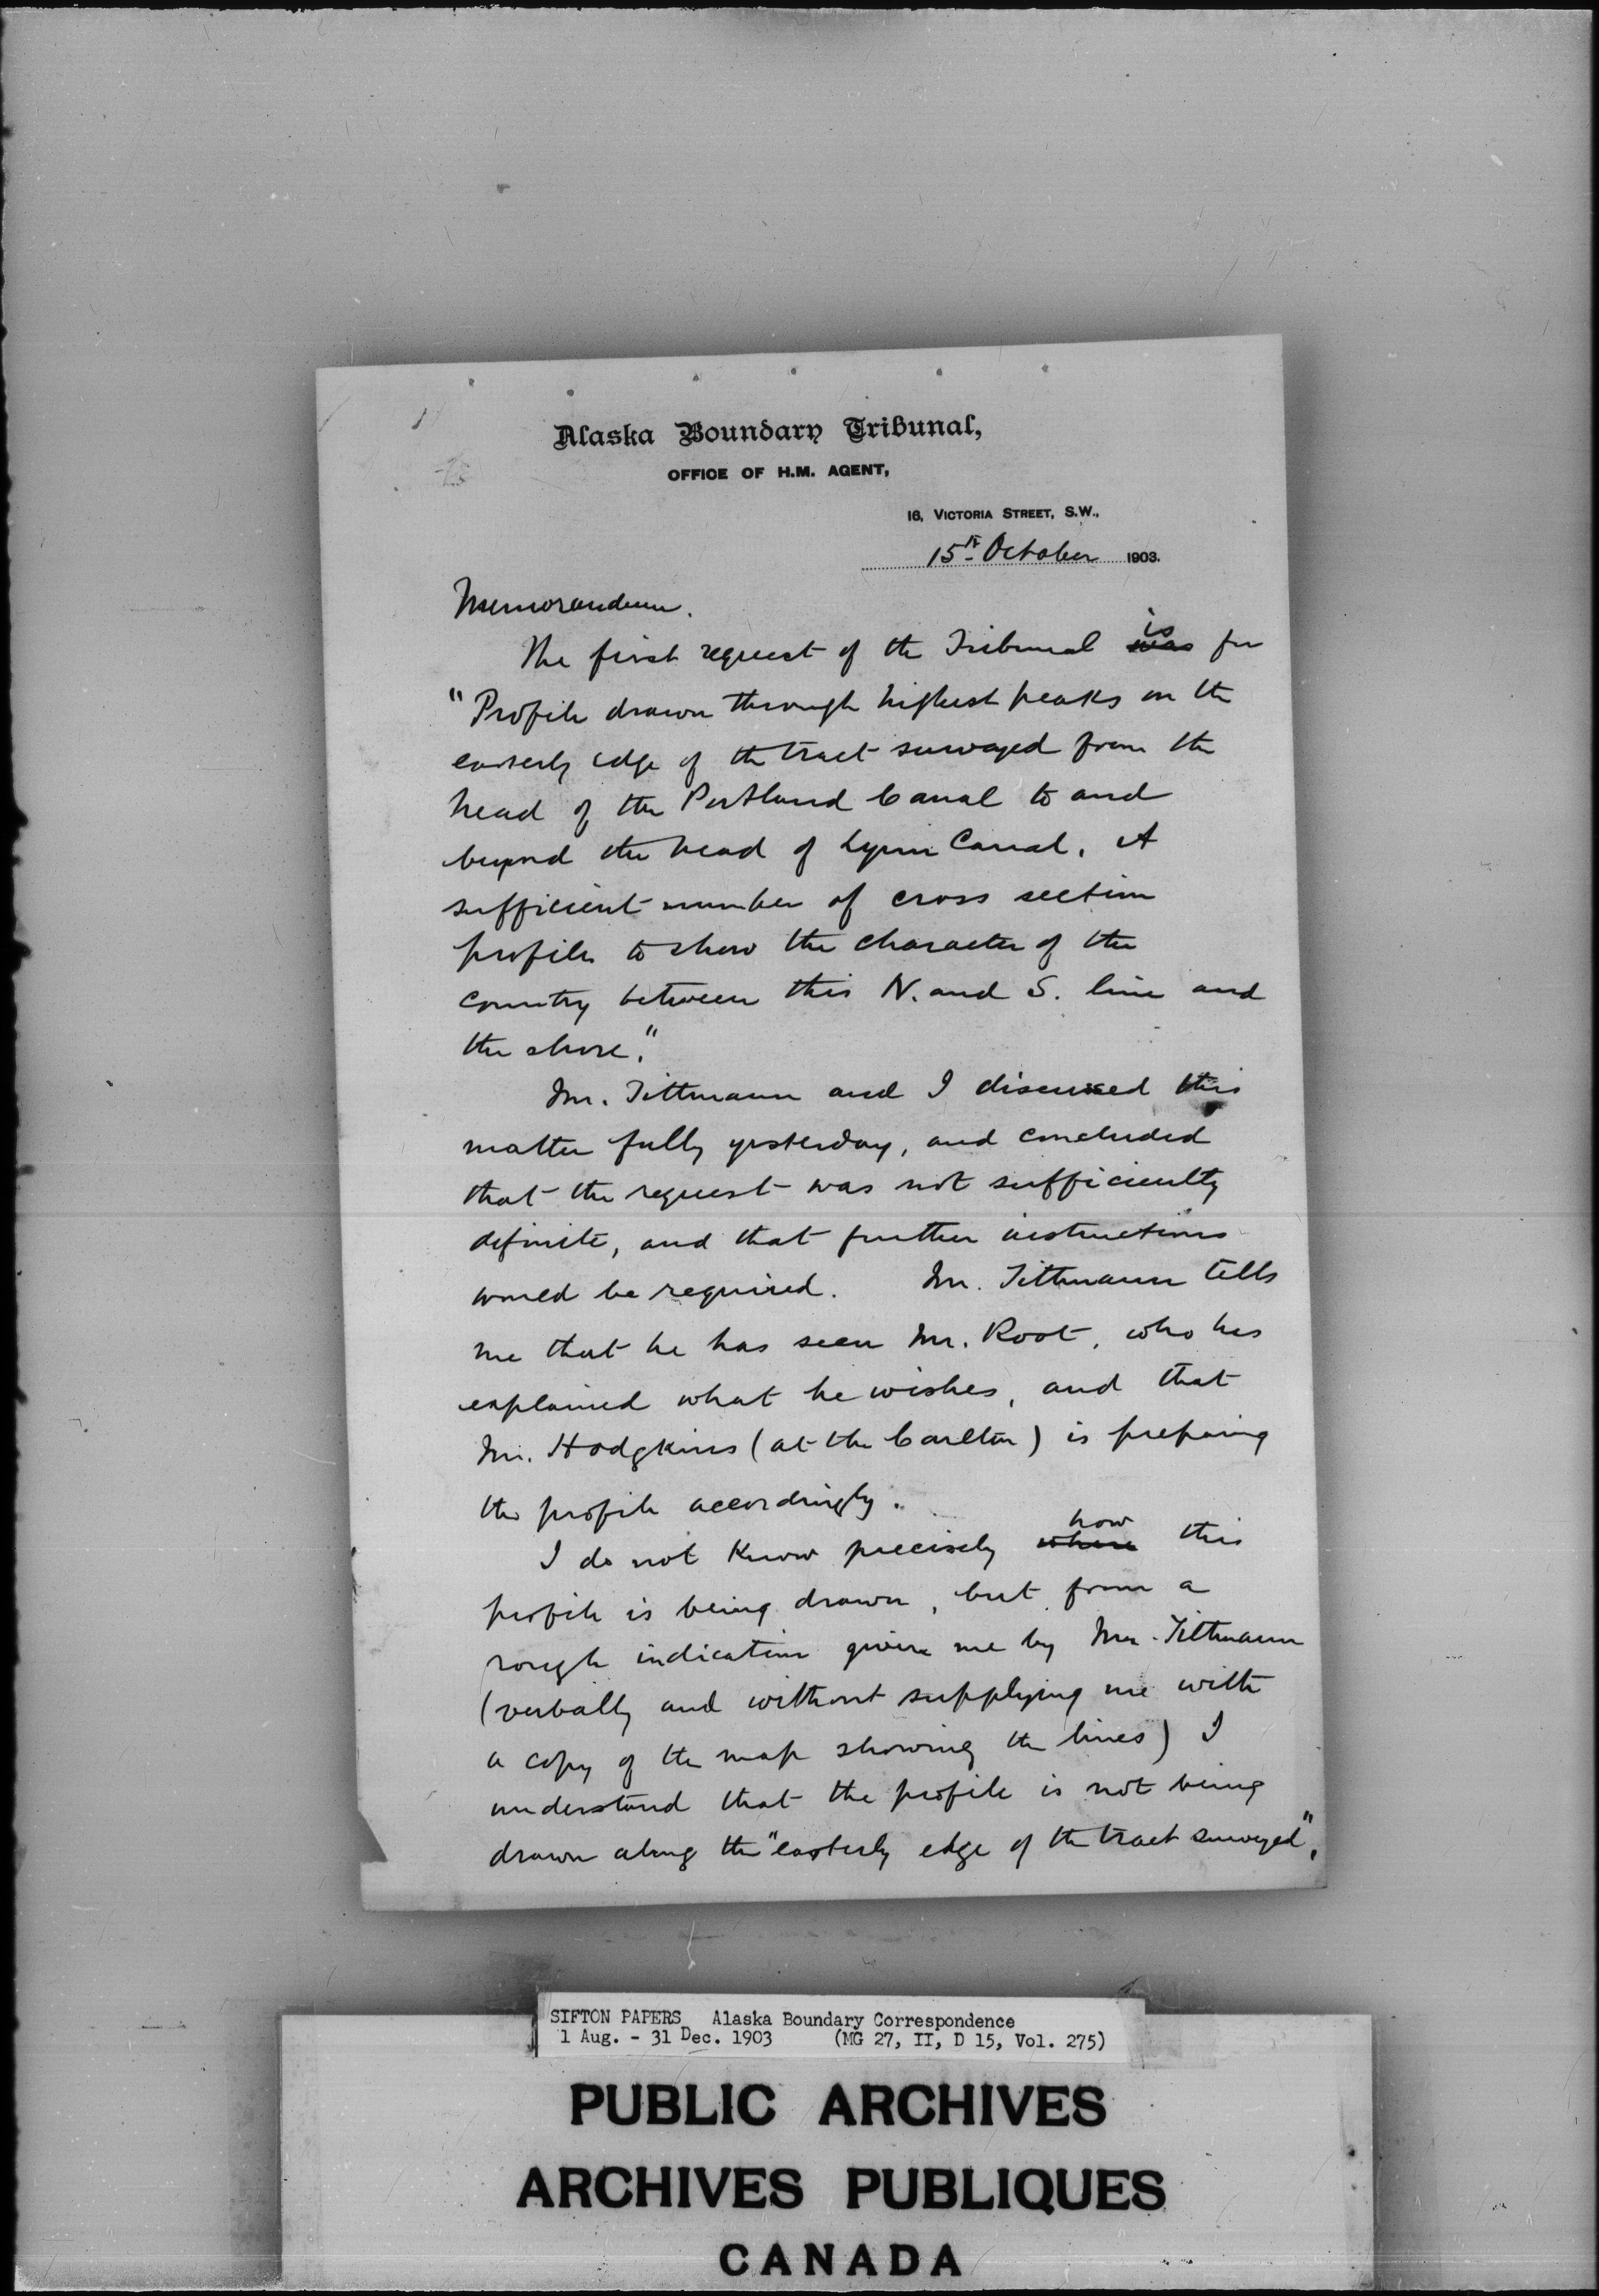 Alaska Boundary Tribunal,
OFFICE OF H.M. AGENT,
16, VICTORIA STREET, S.W.,
15th October 1903.
Memorandum.
The first request of the Tribunal was is for
"Profile drawn through highest peaks on the
easterly edge of the tract surveyed from the
head of the Portland Canal to and
beyond the head of Lynn Canal. A
sufficient number of cross section
profiles to show the character of the
country between this N. and S. line and
the shore."
Mr. Tittmann and I discussed this
matter fully yesterday, and concluded
that the request was not sufficiently
definite, and that further instructions
would be required. Mr. Tittmann tells
me that he has seen Mr. Root, who has
explained what he wishes, and that
Mr. Hodgkins (at the Carlton) is preparing
the profile accordingly.
I do not know precisely where how this
profile is being drawn, but from a
rough indication given me by Mr. Tittmann
(verbally and without supplying me with
a copy of the map showing the lines) I
understand that the profile is not being
drawn along the "easterly edge of the tract surveyed",
SIFTON PAPERS Alaska Boundary Correspondence
1 Aug. - 31 Dec. 1903 (MG 27, II, D 15, Vol. 275)
PUBLIC ARCHIVES
ARCHIVES PUBLIQUES
CANADA